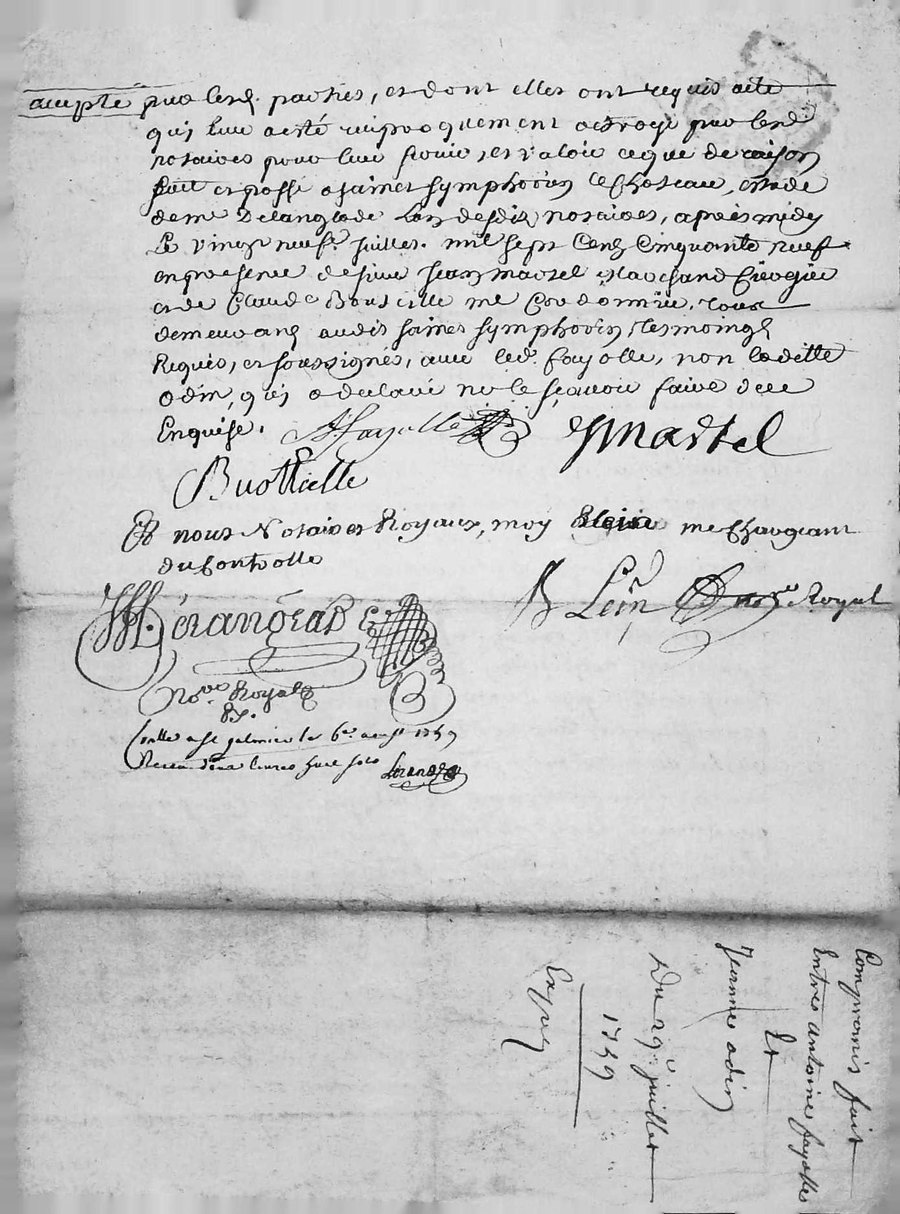 accepté par lesd. parties, et dont elles ont requis acte
qui leur a esté reciproquement octroyé par lesd.
notaires pour leur servir, et valoir ce que de raison
fait et passé a saint symphorien le chateau, estude
de me Delangrade l'un desdis notaires, apres midy
Le vingt neuf. juillet. mil sept Cens Cinquante neuf
en presence de sieur jean martel marchand Cirogier
et de Claude me Cordonnier, tous
demeurans audit saint symphorien, tesmoings
Requis, et soussignés, avec led. fayolle, non laditte
odin, qui a declaré ne le sçavoir faire de ce
Enquise. A. fayolle JMartel
Et nous Notaires Royaux, moy me Chargeant
du Controlle
Royal
No.re Royal
a st galmier le 6e aoust 1759
Receu livres sols
Compromis fait
Entres antoines fayolles
Et
Jeannes odin
Du 29e juillet
1759
Expé